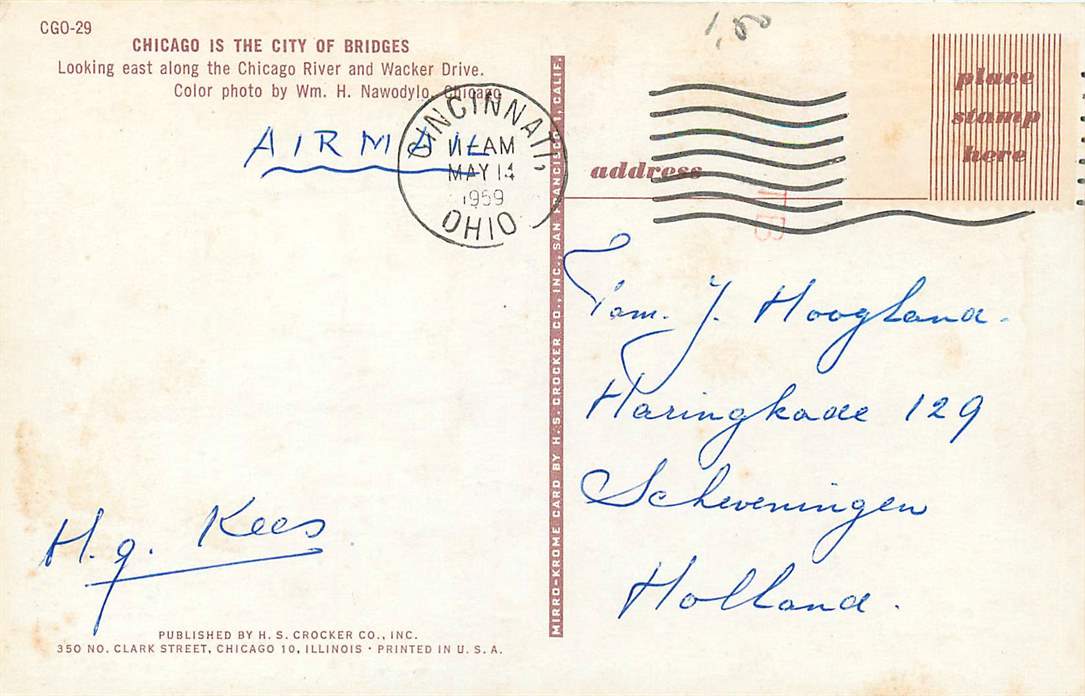 CGO-29
CHICAGO IS THE CITY OF BRIDGES
Looking east along the Chicago River and Wacker Drive.
Color photo by Wm. H. Nawodylo, Chicago
AIRMAIL
CINCINNATI,
11 AM
MAY 14
1959
OHIO
1.00
place
stamp
here
address
Fam. J. Hoogland.
Haringkade 129
Scheveningen
Holland.
H.g. Kees
MIRRO-KROME CARD BY H. S. CROCKER CO., INC., SAN FRANCISCO 1, CALIF.
PUBLISHED BY H. S. CROCKER CO., INC.
350 NO. CLARK STREET, CHICAGO 10, ILLINOIS · PRINTED IN U. S. A.